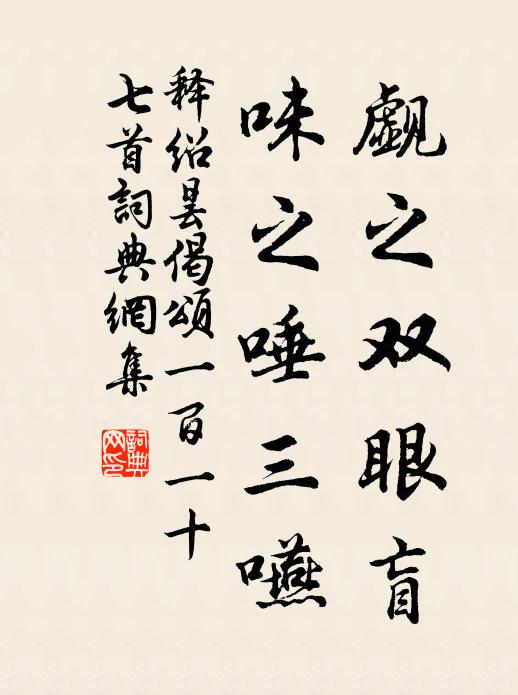 觑之双眼盲
味之唾三嚥
释绍昙偈頌一百一十
七首詞典網集
詞典网印